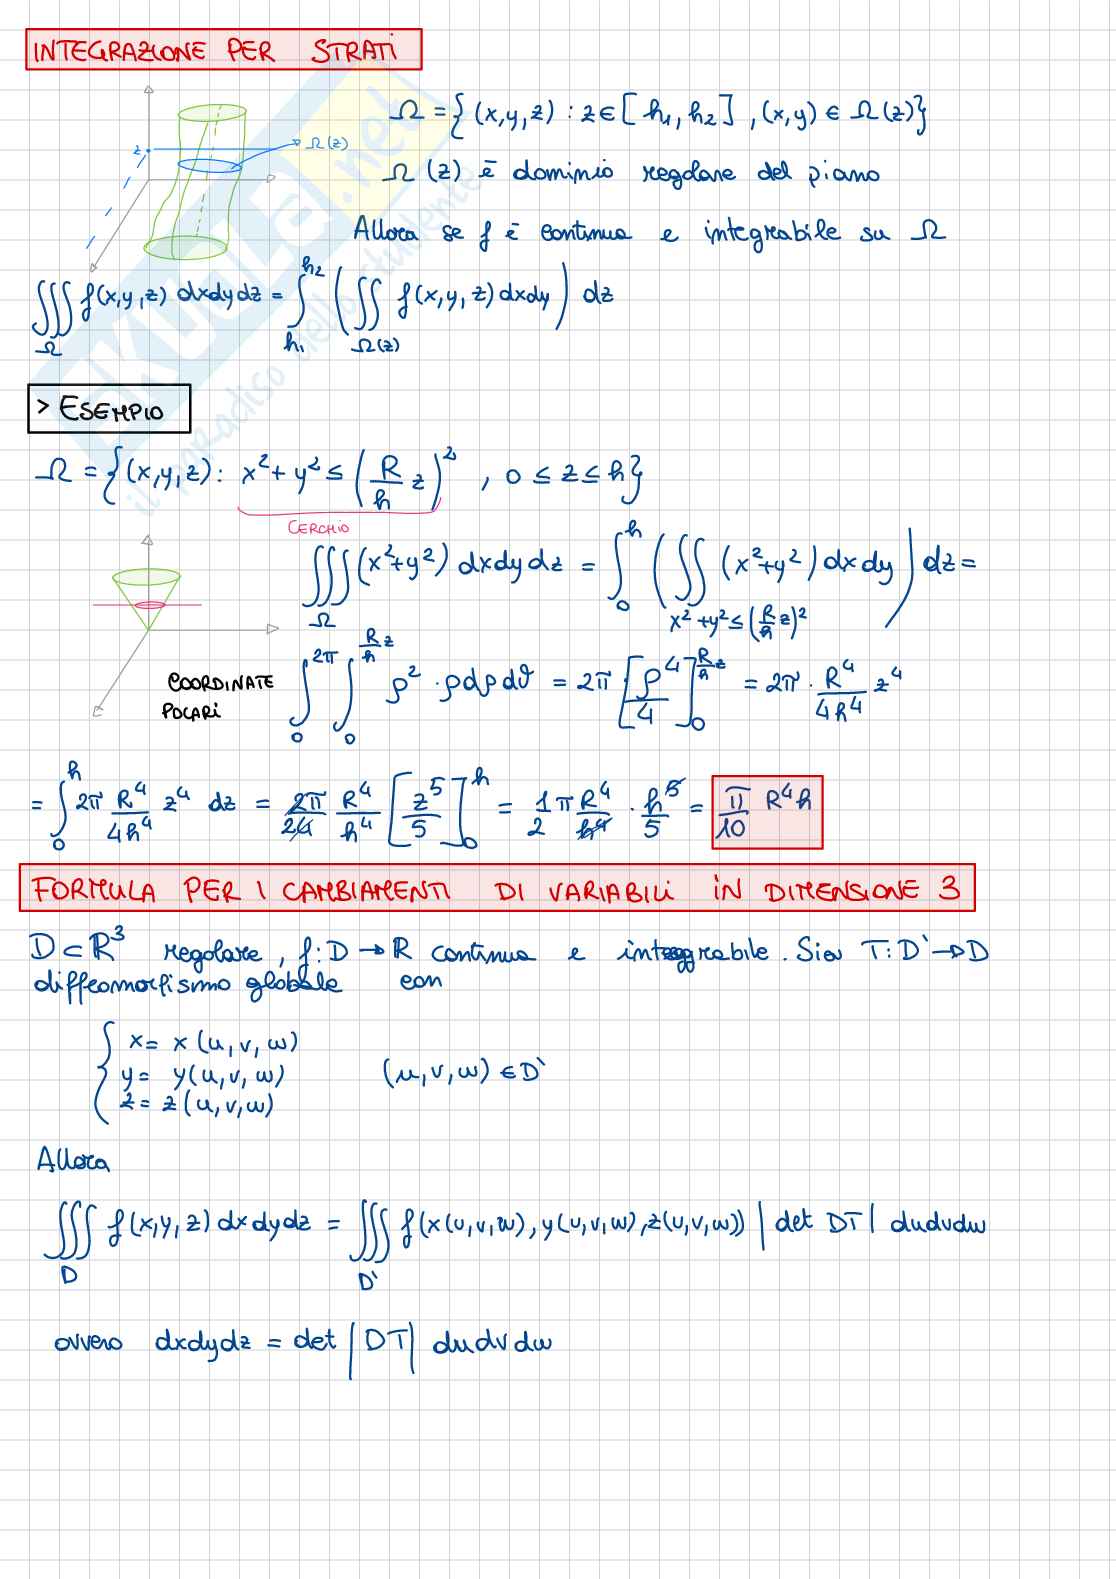 INTEGRAZIONE PER STRATI
Ω = { (x,y,z) : z ∈ [ h₁, h₂ ] , (x,y) ∈ Ω(z)}
z
Ω(z)
Ω (z) è dominio regolare del piano
Allora se f è continua e integrabile su Ω
∭_Ω f(x,y,z) dxdydz = ∫_{h₁}^{h₂} ( ∬_{Ω(z)} f(x,y,z) dxdy ) dz
> ESEMPIO
Ω = { (x,y,z): x² + y² ≤ ( R/h z )² , 0 ≤ z ≤ h}
CERCHIO
∭_Ω (x²+y²) dxdydz = ∫_0^h ( ∬_{x²+y² ≤ (R/h z)²} (x²+y²) dxdy ) dz =
COORDINATE
POLARI
∫_0^{2π} ∫_0^{R/h z} ρ² · ρdρdϑ = 2π [ ρ⁴/4 ]_0^{R/h z} = 2π · R⁴/4h⁴ z⁴
= ∫_0^h 2π R⁴/4h⁴ z⁴ dz = 2π/24 R⁴/h⁴ [ z⁵/5 ]_0^h = 1/2 π R⁴/h⁴ · h⁵/5 = π/10 R⁴h
FORMULA PER I CAMBIAMENTI DI VARIABILI IN DIMENSIONE 3
D ⊂ R³ regolare, f: D → R continua e integrabile. Sia T: D' → D
diffeomorfismo globale con
{ x = x (u, v, w)
y = y(u, v, w) (u, v, w) ∈ D'
z = z(u, v, w)
Allora
∭_D f(x,y,z) dxdydz = ∭_{D'} f(x(u,v,w), y(u,v,w), z(u,v,w)) | det DT | dudvdw
ovvero dxdydz = det | DT | dudvdw
skuola.net
il paradiso dello studente